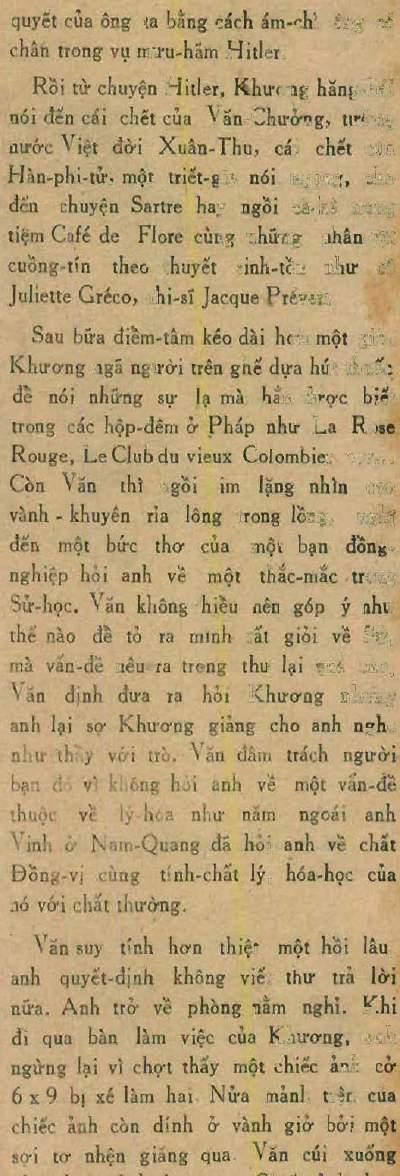 quyết của ông ta bằng cách ám-chỉ ông có
chân trong vụ mưu-hãm Hitler.
Rồi từ chuyện Hitler, Khương hăng
nói đến cái chết của Văn-Chưởng,
nước Việt đời Xuân-Thu, cái chết của
Hàn-phi-tử, một triết-gia nói ngọng, cho
đến chuyện Sartre hay ngồi
tiệm Café de Flore cùng những nhân
cuồng-tín theo thuyết sinh-tồn như cô
Juliette Gréco, thi-sĩ Jacque Préver
Sau bữa điểm-tâm kéo dài hơn một giờ
Khương ngã người trên ghế dựa hút thuốc
để nói những sự lạ mà hắn được biết
trong các hộp-đêm ở Pháp như La Rose
Rouge, Le Club du vieux Colombier
Còn Văn thì ngồi im lặng nhìn
vành-khuyên rỉa lông trong lồng, nghĩ
đến một bức thơ của một bạn đồng-
nghiệp hỏi anh về một thắc-mắc trong
Sử-học. Văn không hiểu nên góp ý như
thế nào để tỏ ra mình rất giỏi về Sử,
mà vấn-đề nêu ra trong thư lại quá
Văn định đưa ra hỏi Khương nhưng
anh lại sợ Khương giảng cho anh nghe
như thầy với trò. Văn đâm trách người
bạn đó vì không hỏi anh về một vấn-đề
thuộc về lý-hóa như năm ngoái anh
Vinh ở Nam-Quang đã hỏi anh về chất
Đồng-vị cùng tính-chất lý hóa-học của
nó với chất thường.
Văn suy tính hơn thiệt một hồi lâu
anh quyết-định không viết thư trả lời
nữa. Anh trở về phòng nằm nghỉ. Khi
đi qua bàn làm việc của Khương, anh
ngừng lại vì chợt thấy một chiếc ảnh cở
6 x 9 bị xé làm hai. Nửa mảnh trên của
chiếc ảnh còn dính ở vành giỏ bởi một
sợi tơ nhện giăng qua. Văn cúi xuống